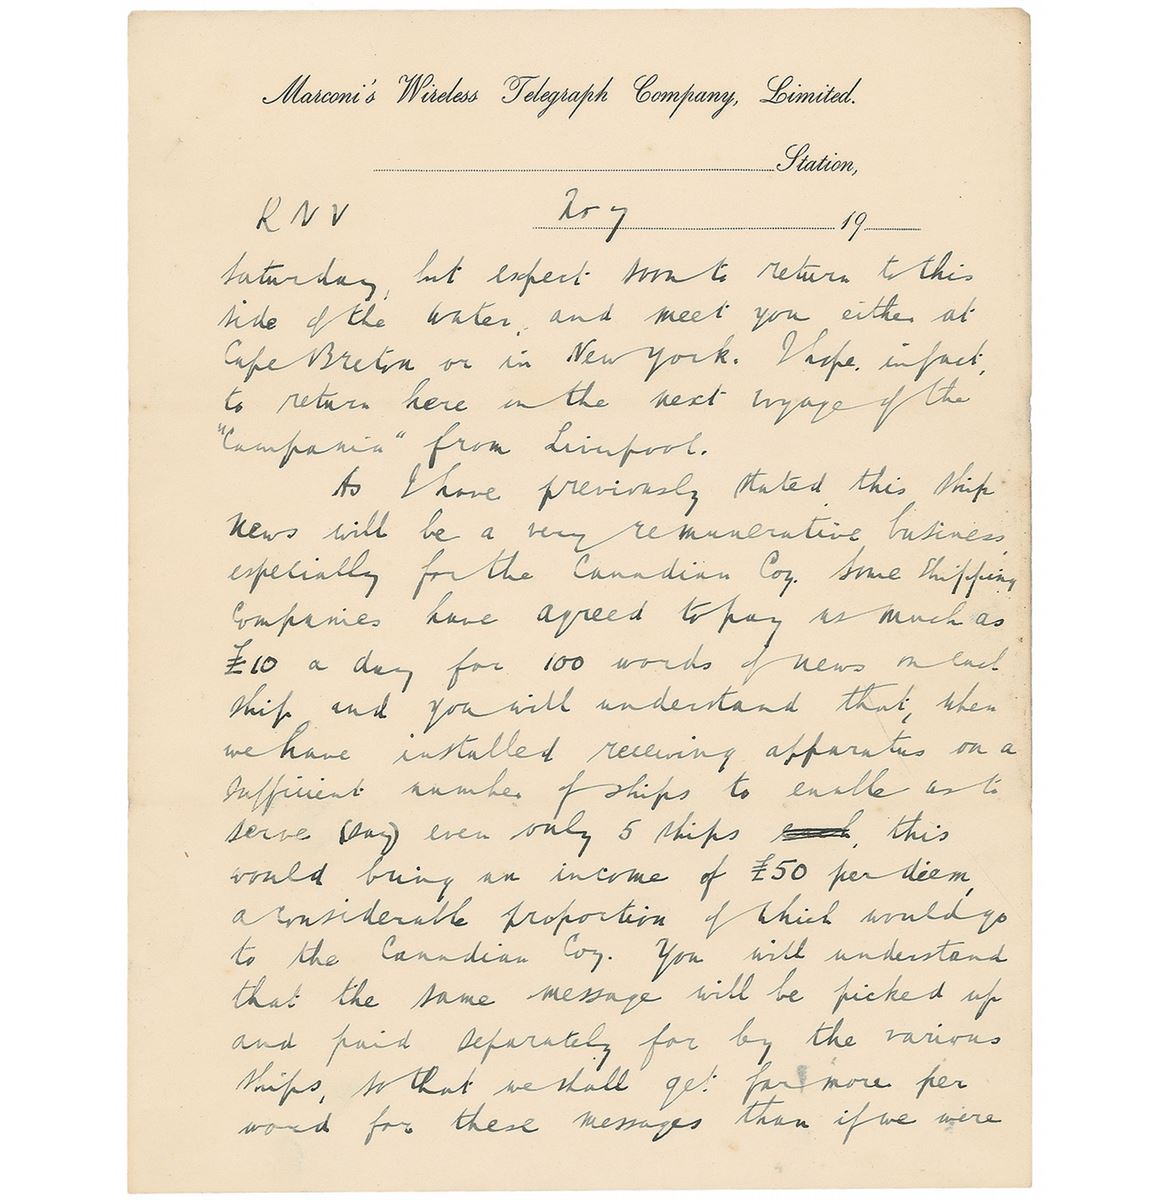 Marconi's Wireless Telegraph Company, Limited.
Station,
R N V No 7 19
Saturday, but expect soon to return to this
side of the water, and meet you either at
Cape Breton or in New York. I hope, in fact,
to return here on the next voyage of the
"Campania" from Liverpool.
As I have previously stated this ship
news will be a very remunerative business,
especially for the Canadian Coy. Some Shipping
Companies have agreed to pay as much as
£10 a day for 100 words of news on each
ship and you will understand that, when
we have installed receiving apparatus on a
sufficient number of ships to enable us to
serve (say) even only 5 ships each, this
would bring an income of £50 per diem,
a considerable proportion of which would go
to the Canadian Coy. You will understand
that the same message will be picked up
and paid separately for by the various
ships, so that we shall get far more per
word for these messages than if we were